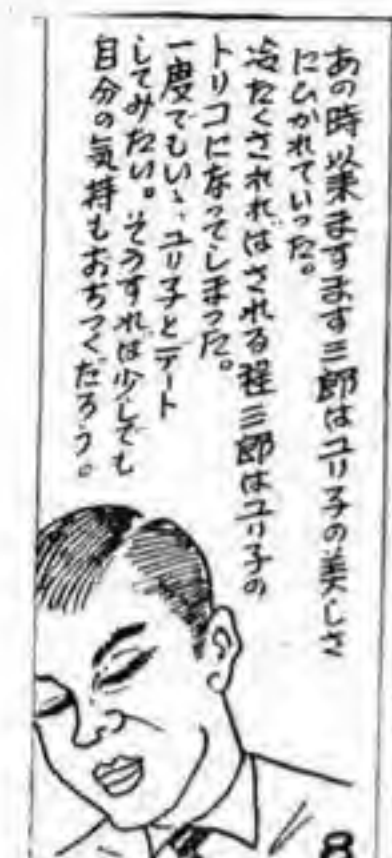 あの時以来ますます三郎はユリ子の美しさ
にひかれていった。
冷たくされればされる程三郎はユリ子の
トリコになってしまった。
一度でもいゝ、ユリ子とデート
してみたい。そうすれば少しでも
自分の気持もおちつくだろう。
8